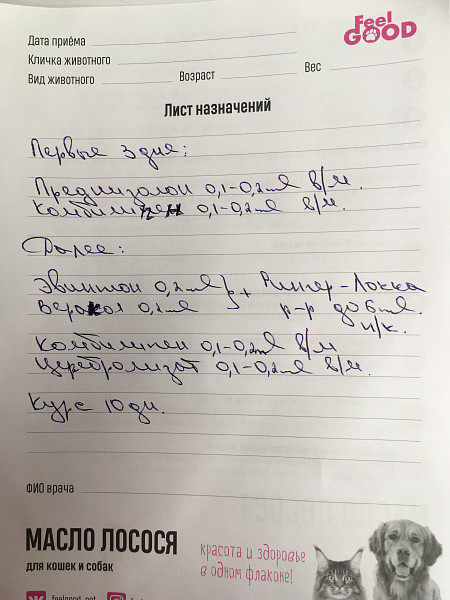 Feel
GOOD
Дата приёма
Кличка животного
Вид животного Возраст Вес
Лист назначений
Первые 3 дня:
Преднизолон 0,1-0,2ml в/м.
Комбилипен 0,1-0,2ml в/м.
Далее:
Эвинтон 0,2ml } + Рингер-Локка
Веракол 0,2ml р-р до 6ml.
п/к.
Комбилипен 0,1-0,2ml в/м
Церебролизат 0,1-0,2ml в/м.
Курс 10 дн.
ФИО врача
МАСЛО ЛОСОСЯ
для кошек и собак
красота и здоровье
в одном флаконе!